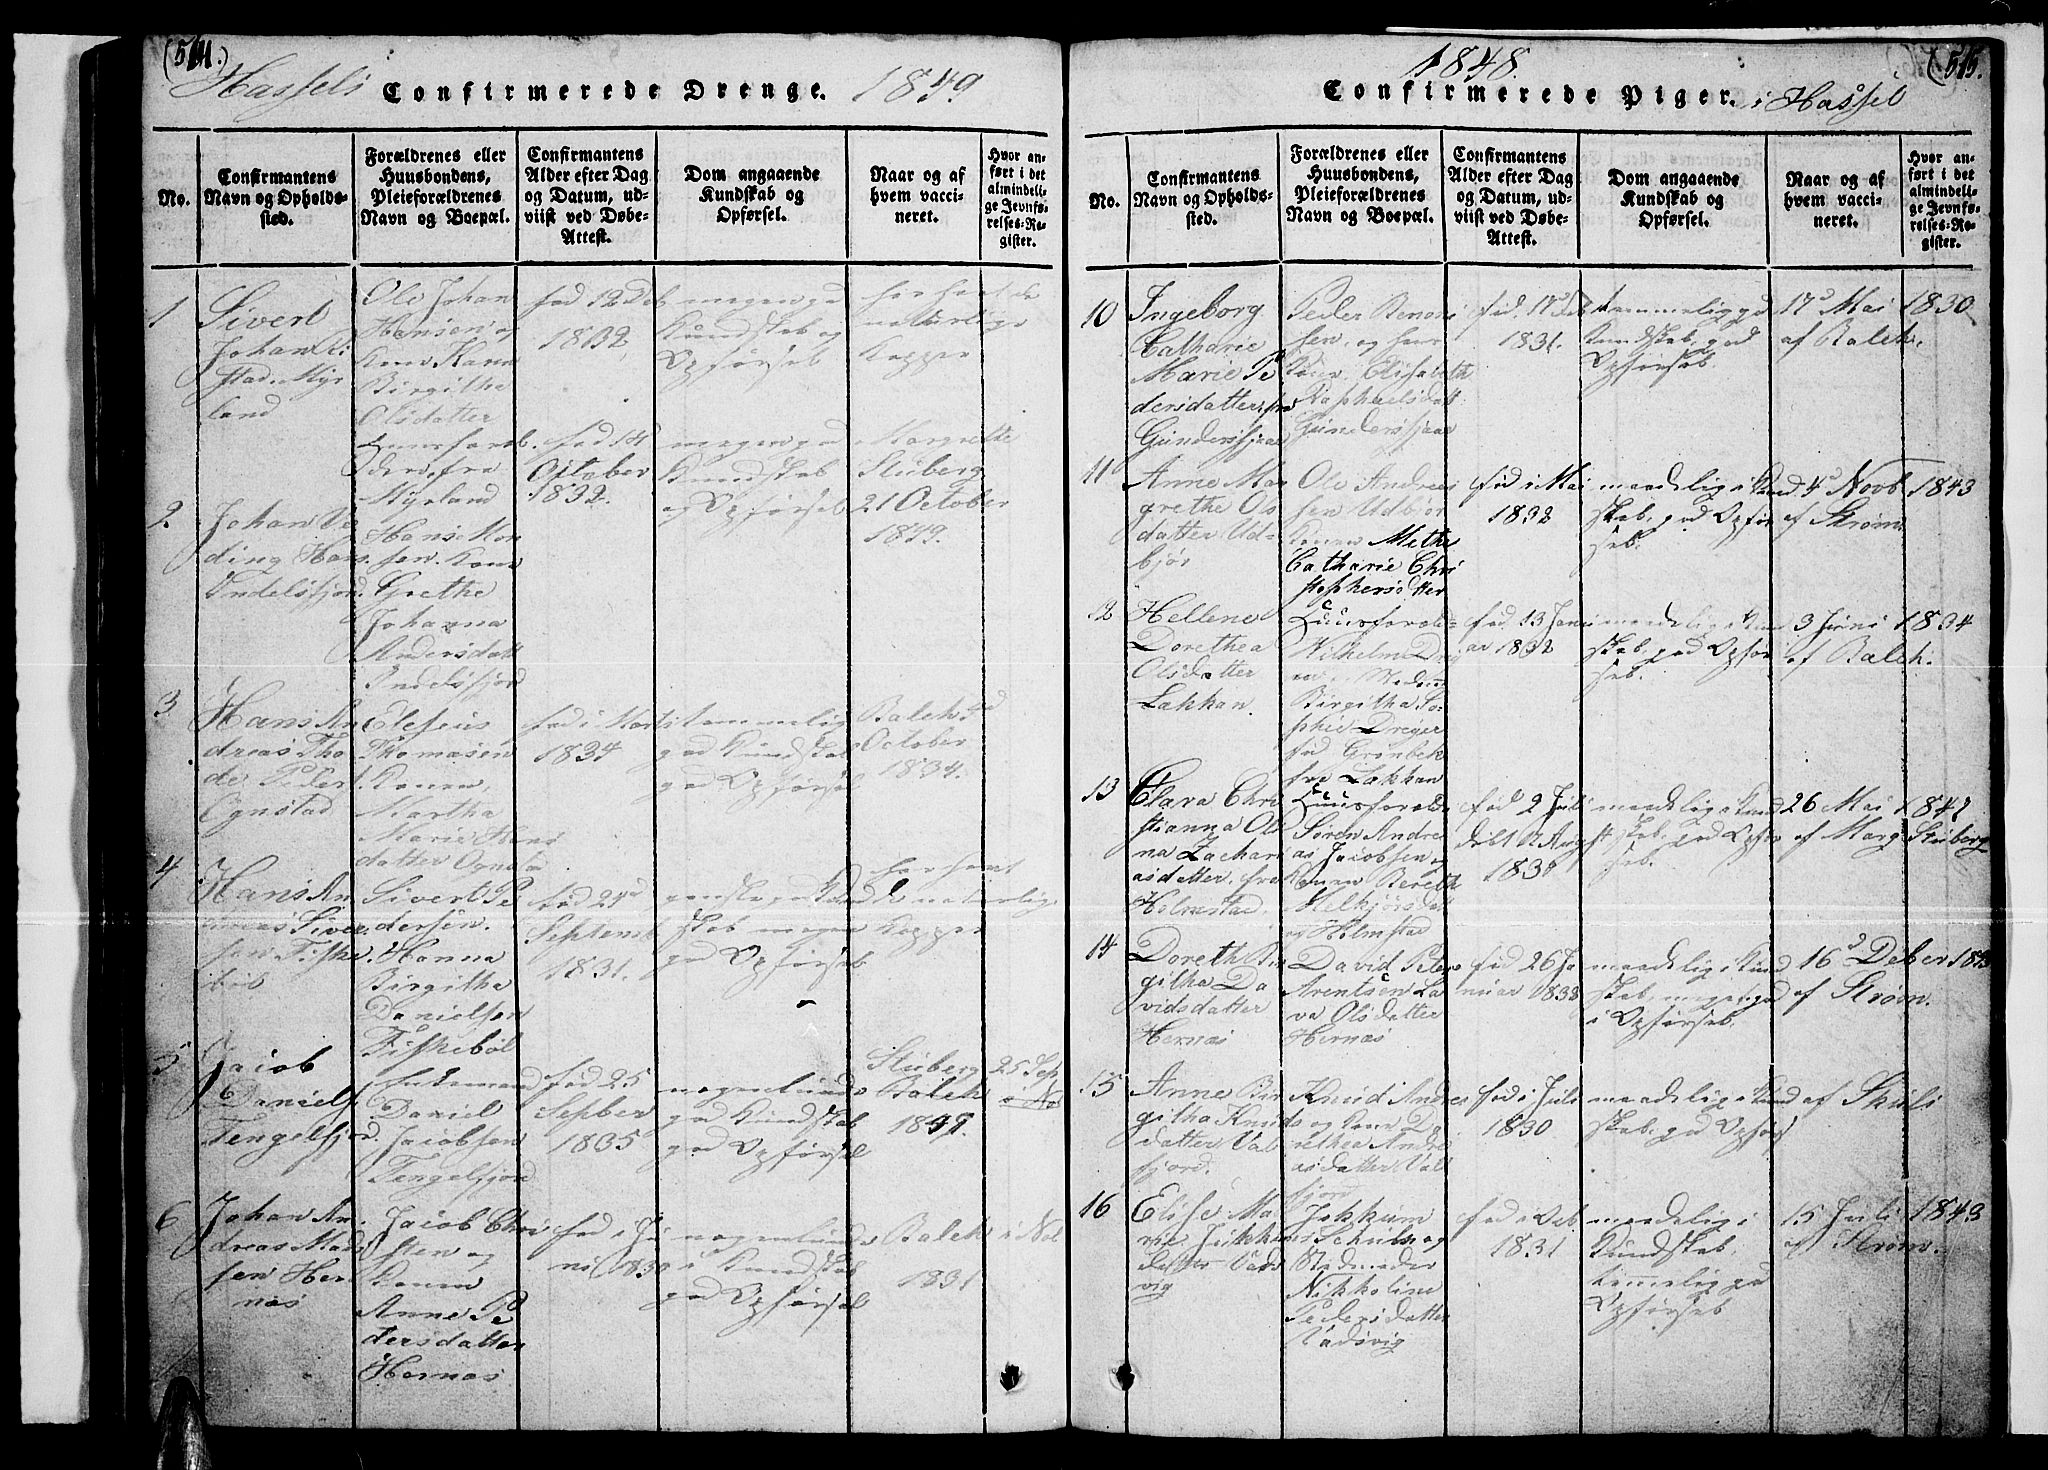 (514.)
Hassels Confirmerede Drenge. 1849
No.
Confirmantens
Navn og Opholds-
sted.
Forældrenes eller
Huusbondens,
Pleieforældrenes
Navn og Boepæl.
Confirmantens
Alder efter Dag
og Datum, ud-
viist ved Døbe-
Attest.
Dom angaaende
Kundskab og
Opførsel.
Naar og af
hvem vacci-
neret.
Hvor an-
ført i det
almindeli-
ge Jevnfø-
relses-Re-
gister.
1
Sivert
Johan
stad. Myr
land
Ole Johan
Hansen og
Kone Hann
Birgitha
Olsdatter
Huusforæl.
fra
Myrland
fød 12 Deb
1832
megen god
Kundskab og
Opførsel
har havt de
naturlige
Kopper
2
Johan
Hans.
Indelsfjord
Hans Mon
sen. Kone
Grethe
Johanna
Andersdatt
Indelsfjord
fød 14
October
1832.
megen god
Kundskab
og Opførsel
Margrethe
Stuberg
21 October
1849.
3
Hans An
dreas Tho
Ognstad
Elesius
Thomasen
Konen,
Martha
Marie Hans
datter Ognsta
fød i Marts
1834
temmelig
god Kundskab
god Opførsel
Balch
October
1834.
4
Hans An
dreas Siver
sen Fiske
böl
Sivert Pe
dersen.
Hanna
Birgitha
Danielsen
Fiskeböl
fød 24
Septemb
1831.
skab megen
god Opførsel
har havt
de naturlig
Kopper
5
Jacob
Daniels
Tengelfjord.
Daniel
Jacobsen
Tengelfjord
fød 25
Sepber
1835
nogenlunde
god Kundskab
god Opførsel
Stuberg 25 Sep
Balch
6
Johan An
dreas Mad
sen Her
næs
Jacob Chri
sten og
Konen
Anne Pe
dersdatter
Hernæs
fød i Ju
ni 1830
nogenlunde
i Kundskab
god Opførsel
Balch
1831
(515.
1848.
Confirmerede Piger. i Hassel
No.
Confirmantens
Navn og Opholds-
sted.
Forældrenes eller
Huusbondens,
Pleieforældrenes
Navn og Boepæl.
Confirmantens
Alder efter Dag
og Datum, ud-
viist ved Døbe-
Attest.
Dom angaaende
Kundskab og
Opførsel.
Naar og af
hvem vacci-
neret.
Hvor an-
ført i det
almindeli-
ge Jevnfø-
relses-Re-
gister.
10
Ingeborg
Catharie
Marie Pe
dersdatter, fra
Gundersfjær
Peder Benoni
sen, og hans
Kone Elisabeth
Raphaelsdatt
Gundersfjær
fød. 17d
1831.
temmelig god
Kundskab, god
Opførsel.
17d Mai 1830
af Balch.
11
Anne Mar
grethe Ols
datter Ud-
björ
Ole Andrea
sen Udbjör
Konen Methe
Catharie Chri
stophersdatter
fød i Mai
1832
maadelig i Kund
skab, god Opfør
sel.
4d Novb 1843
af Strøm.
12
Hellene
Dorethea
Olsdatter
Lakkan.
Huusforæld-
Wilhelm
Birgitha So-
phie Dreyer
fød Grønbek
fra Lakkan
fød. 13 Janu
ar 1832
maadelig i Kun
skab, god Opfør
sel.
3 Juni 1834
af Balch.
13
Clara Chri
stianna Oli
na Zachari
asdatter. fra
Holmstad.
Huusforæld.
Søren Andre
as Jacobsen og
Konen Bereth
Melkjørsdatt
og Holmstad
fød 2 Juli
døbt 12 August
maadelig i Kund
skab, god Opfør
sel.
26 Mai 1847
af Marg Stuberg
14
Doreth Bir
githa Da
vidsdatter
Hernæs
David Peter
Arentsen La
va Olsdatter
Hernæs
fød 26 Ja
nuar 1833
maadelig i Kund
skab, meget god
i Opførsel.
16d Deber 1843
af Strøm.
15
Anne Bir
githa Knuds
datter Val
fjord.
Knud Andre
og Kone Do
rethea Andre
asdatter Val
fjord
fød i Juli
1830
maadelig i Kund
skab, god Opførs
af Skuls
16
Elise Ma
rie
datter Vads
vig
Jokkum
Schuls og
Stedmoder
Nikkoline
Pedersdatter
Vadsvig
fød i Deb
1831
maadelig i
Kundskab.
temmelig god
Opførsel
15 Juli 1843
af Strøm.